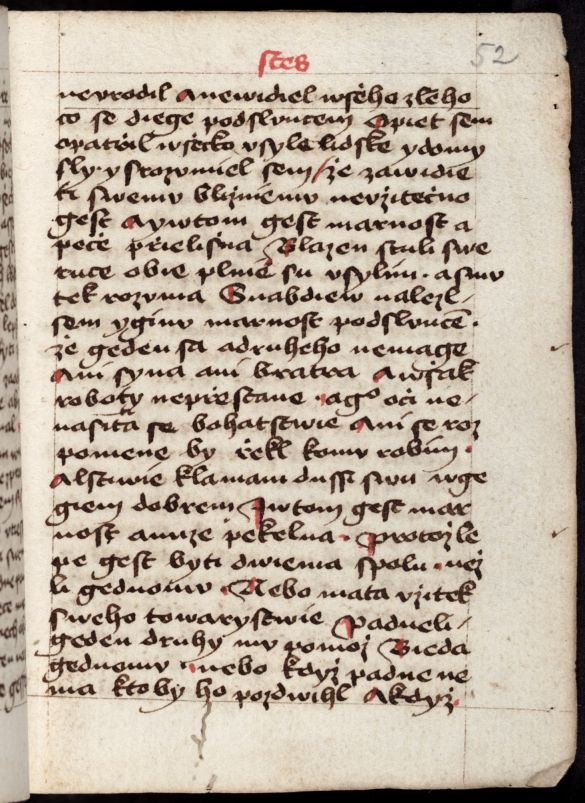 stes
52
nevrodil A newidiel wsěho zleho
co se diege podsluncem Opiet sem
opatřil wsěcko vsyle lidske ydomy
sly · y srozumiel sem / že zawidie
ti swemu blizniemu nevžitečno
gest A ywtom gest marnost a
peče přielišna Blazen stuli swe
ruce obie plnie su vsylim · a smu
tek rozuma Snabdiew nalezl-
sem y ginu marnost podslunce ·
že geden sa adruheho nemage
Ani syna ani bratra A wsak
roboty nepřestane · ago oči ne-
nasita se bohatstwie Ani se roz
pomene by řekl komu robim ·
A lstiwie klamam dussi swu w ge
giem dobrem I wtom gest mar
nost a nuze pekelna · Protož le
pe gest byti dwiema spolu · než
li gednomu · Nebo mata vžitek
sweho towarystwie Padneli-
geden druhy mu pomož Bieda
gednomu · nebo když padne ne
ma ktoby ho pozdwihl A když